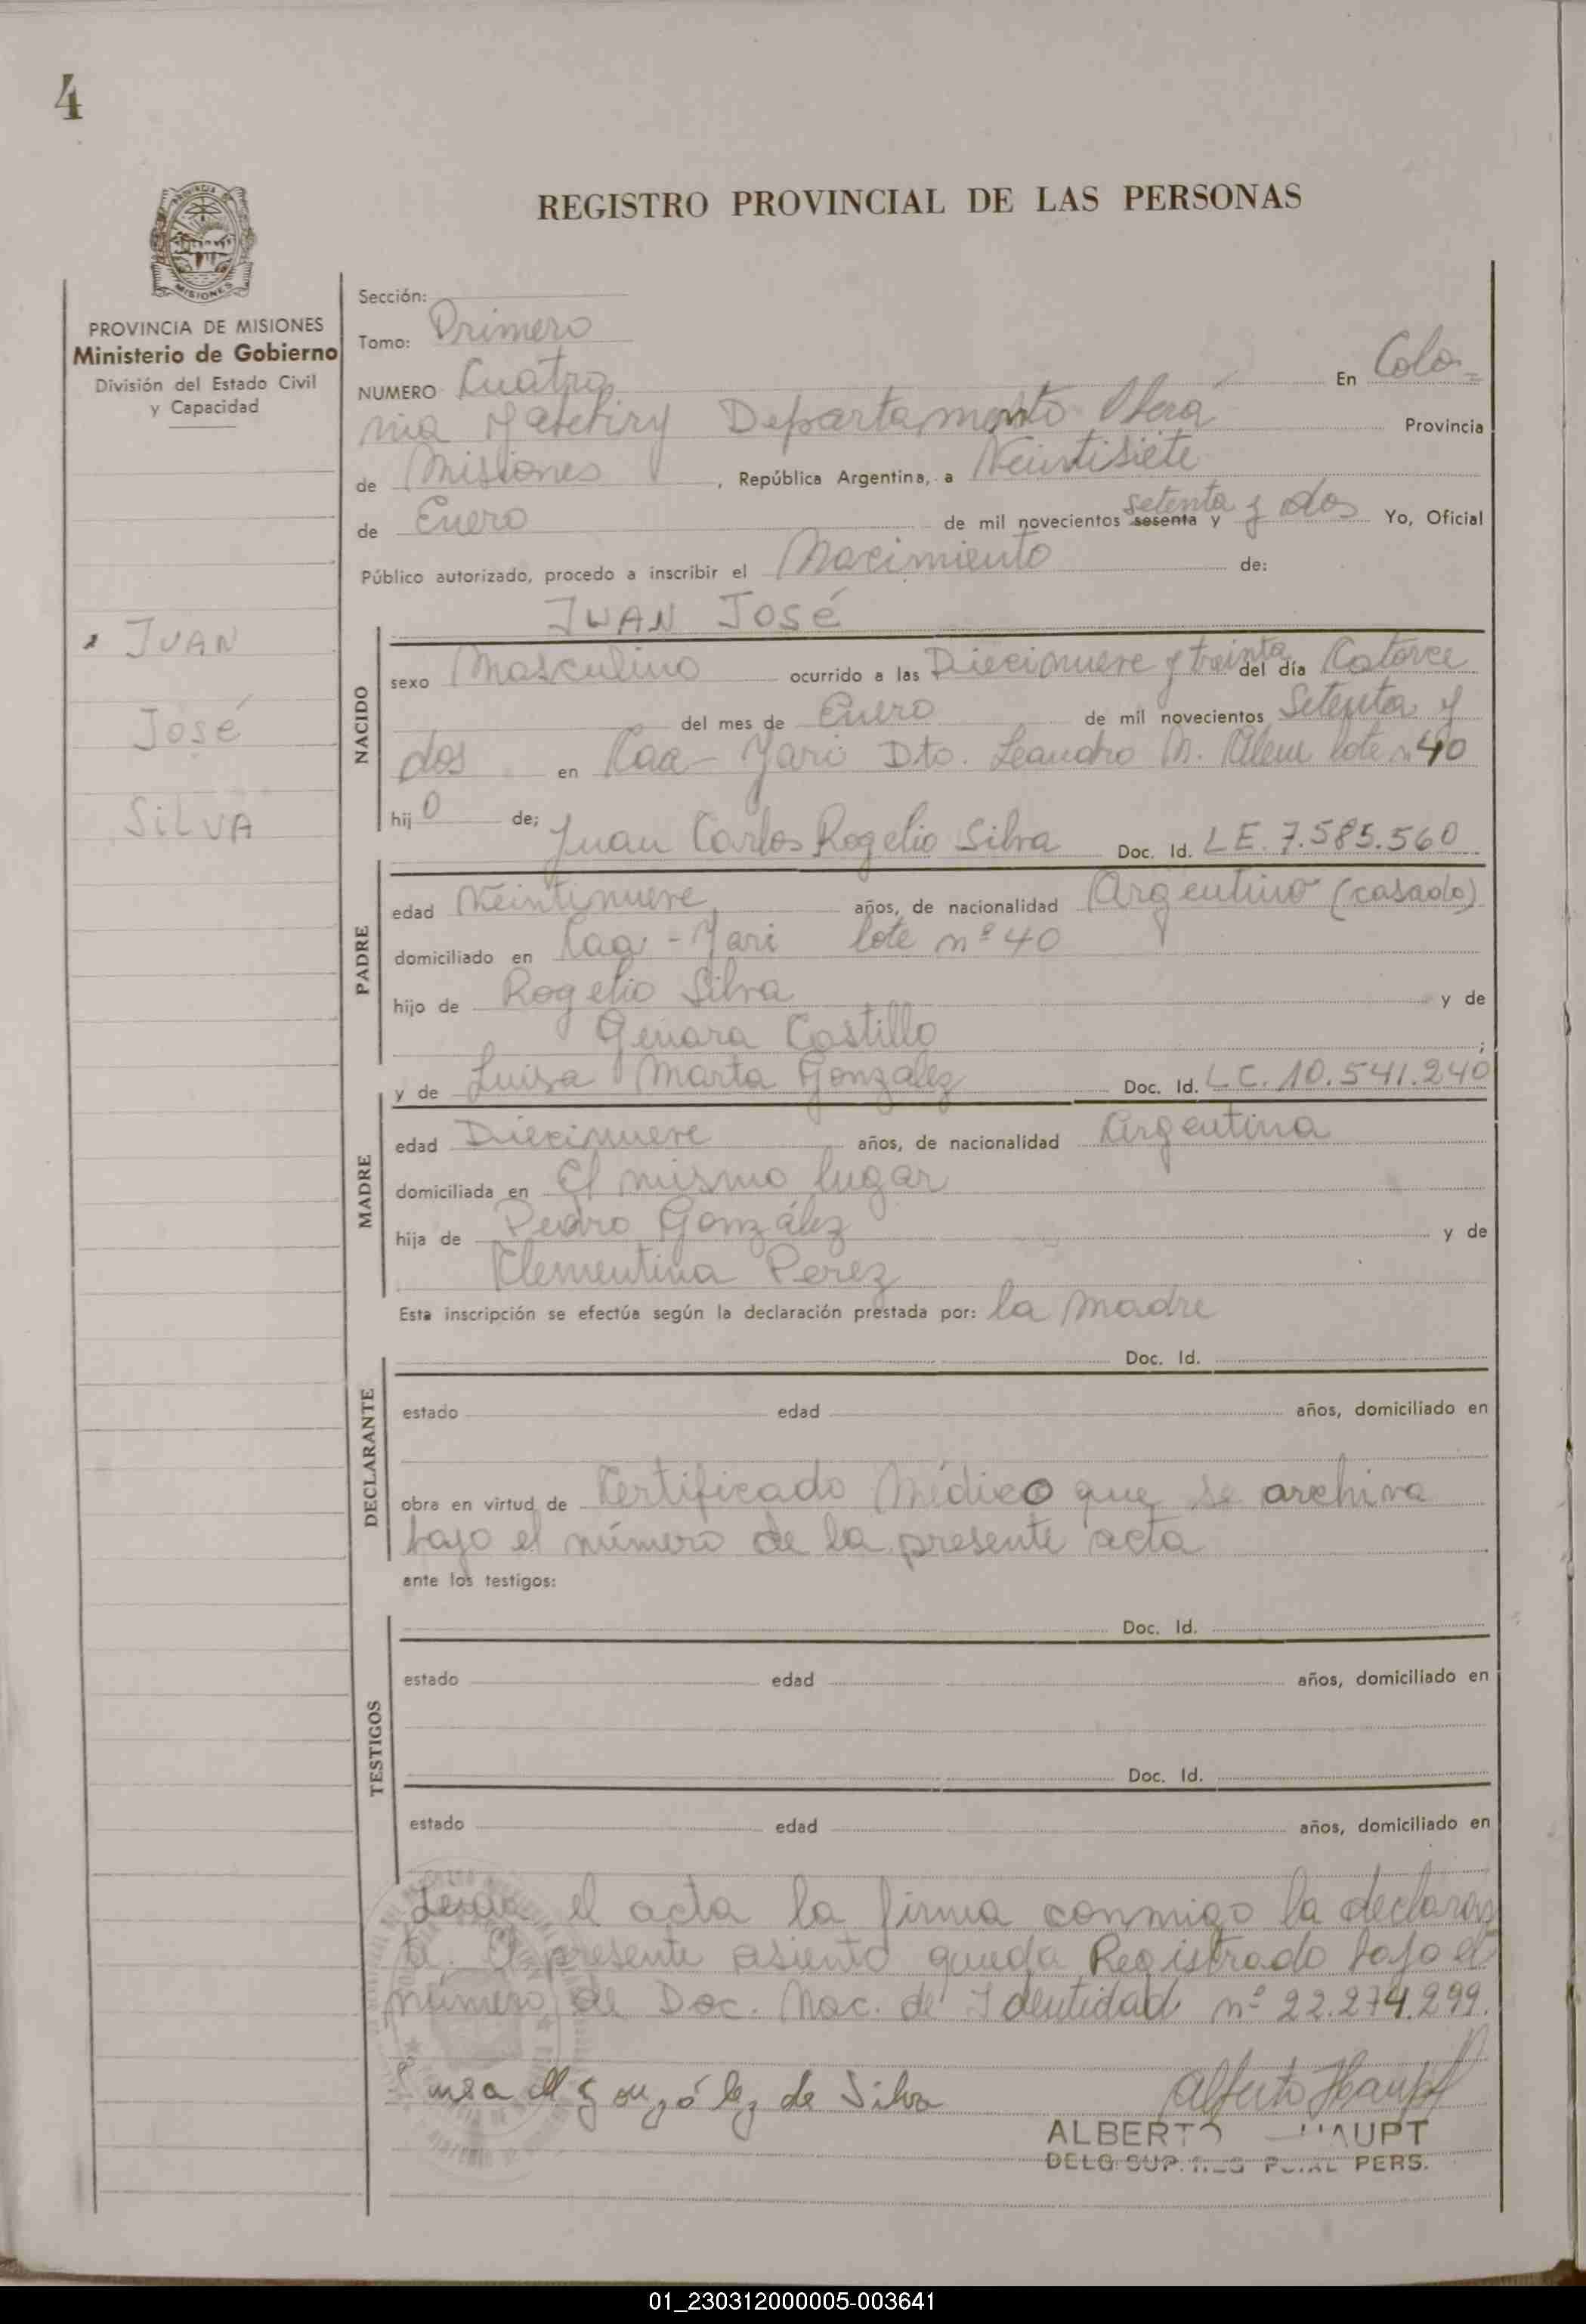 4
REGISTRO PROVINCIAL DE LAS PERSONAS
MISIONES
PROVINCIA DE MISIONES
Ministerio de Gobierno
División del Estado Civil
y Capacidad
JUAN
José
SiLVA
Sección:
Tomo: Primero
NUMERO Cuatro En Colo-
nia Departamento Oberá Provincia
de Misiones, República Argentina, a Veintisiete
de Enero de mil novecientos sesenta y setenta y dos Yo, Oficial
Público autorizado, procedo a inscribir el Nacimiento de:
JUAN José
NACIDO
sexo Masculino ocurrido a las Diecinueve y treinta del día Catorce
del mes de Enero de mil novecientos Setenta y
dos en Caa-Yari Dto. Leandro N. Alem lote nº 40
hijo de; Juan Carlos Rogelio Silva Doc. Id. LE. 7.585.560
PADRE
edad Veintinueve años, de nacionalidad Argentino (casado)
domiciliado en Caa-Yari lote nº 40
hijo de Rogelio Silva y de
Genara Castillo;
y de Luisa Marta Gonzalez Doc. Id. LC. 10.541.240
MADRE
edad Diecinueve años, de nacionalidad Argentina
domiciliada en El mismo lugar
hija de Pedro González y de
Clementina Perez
Esta inscripción se efectúa según la declaración prestada por: la madre
Doc. Id.
DECLARANTE
estado edad años, domiciliado en
obra en virtud de Certificado Médico que se archiva
bajo el número de la presente acta
ante los testigos:
Doc. Id.
TESTIGOS
estado edad años, domiciliado en
Doc. Id.
estado edad años, domiciliado en
Leida el acta la firma conmigo la declaran
te. El presente asiento queda Registrado bajo el
número de Doc. Nac. de Identidad nº 22.274.299.
Luisa M González de Silva
Alberto Haupt
ALBERTO HAUPT
DELG. SUP. REG. PCIAL PERS.
01_230312000005-003641